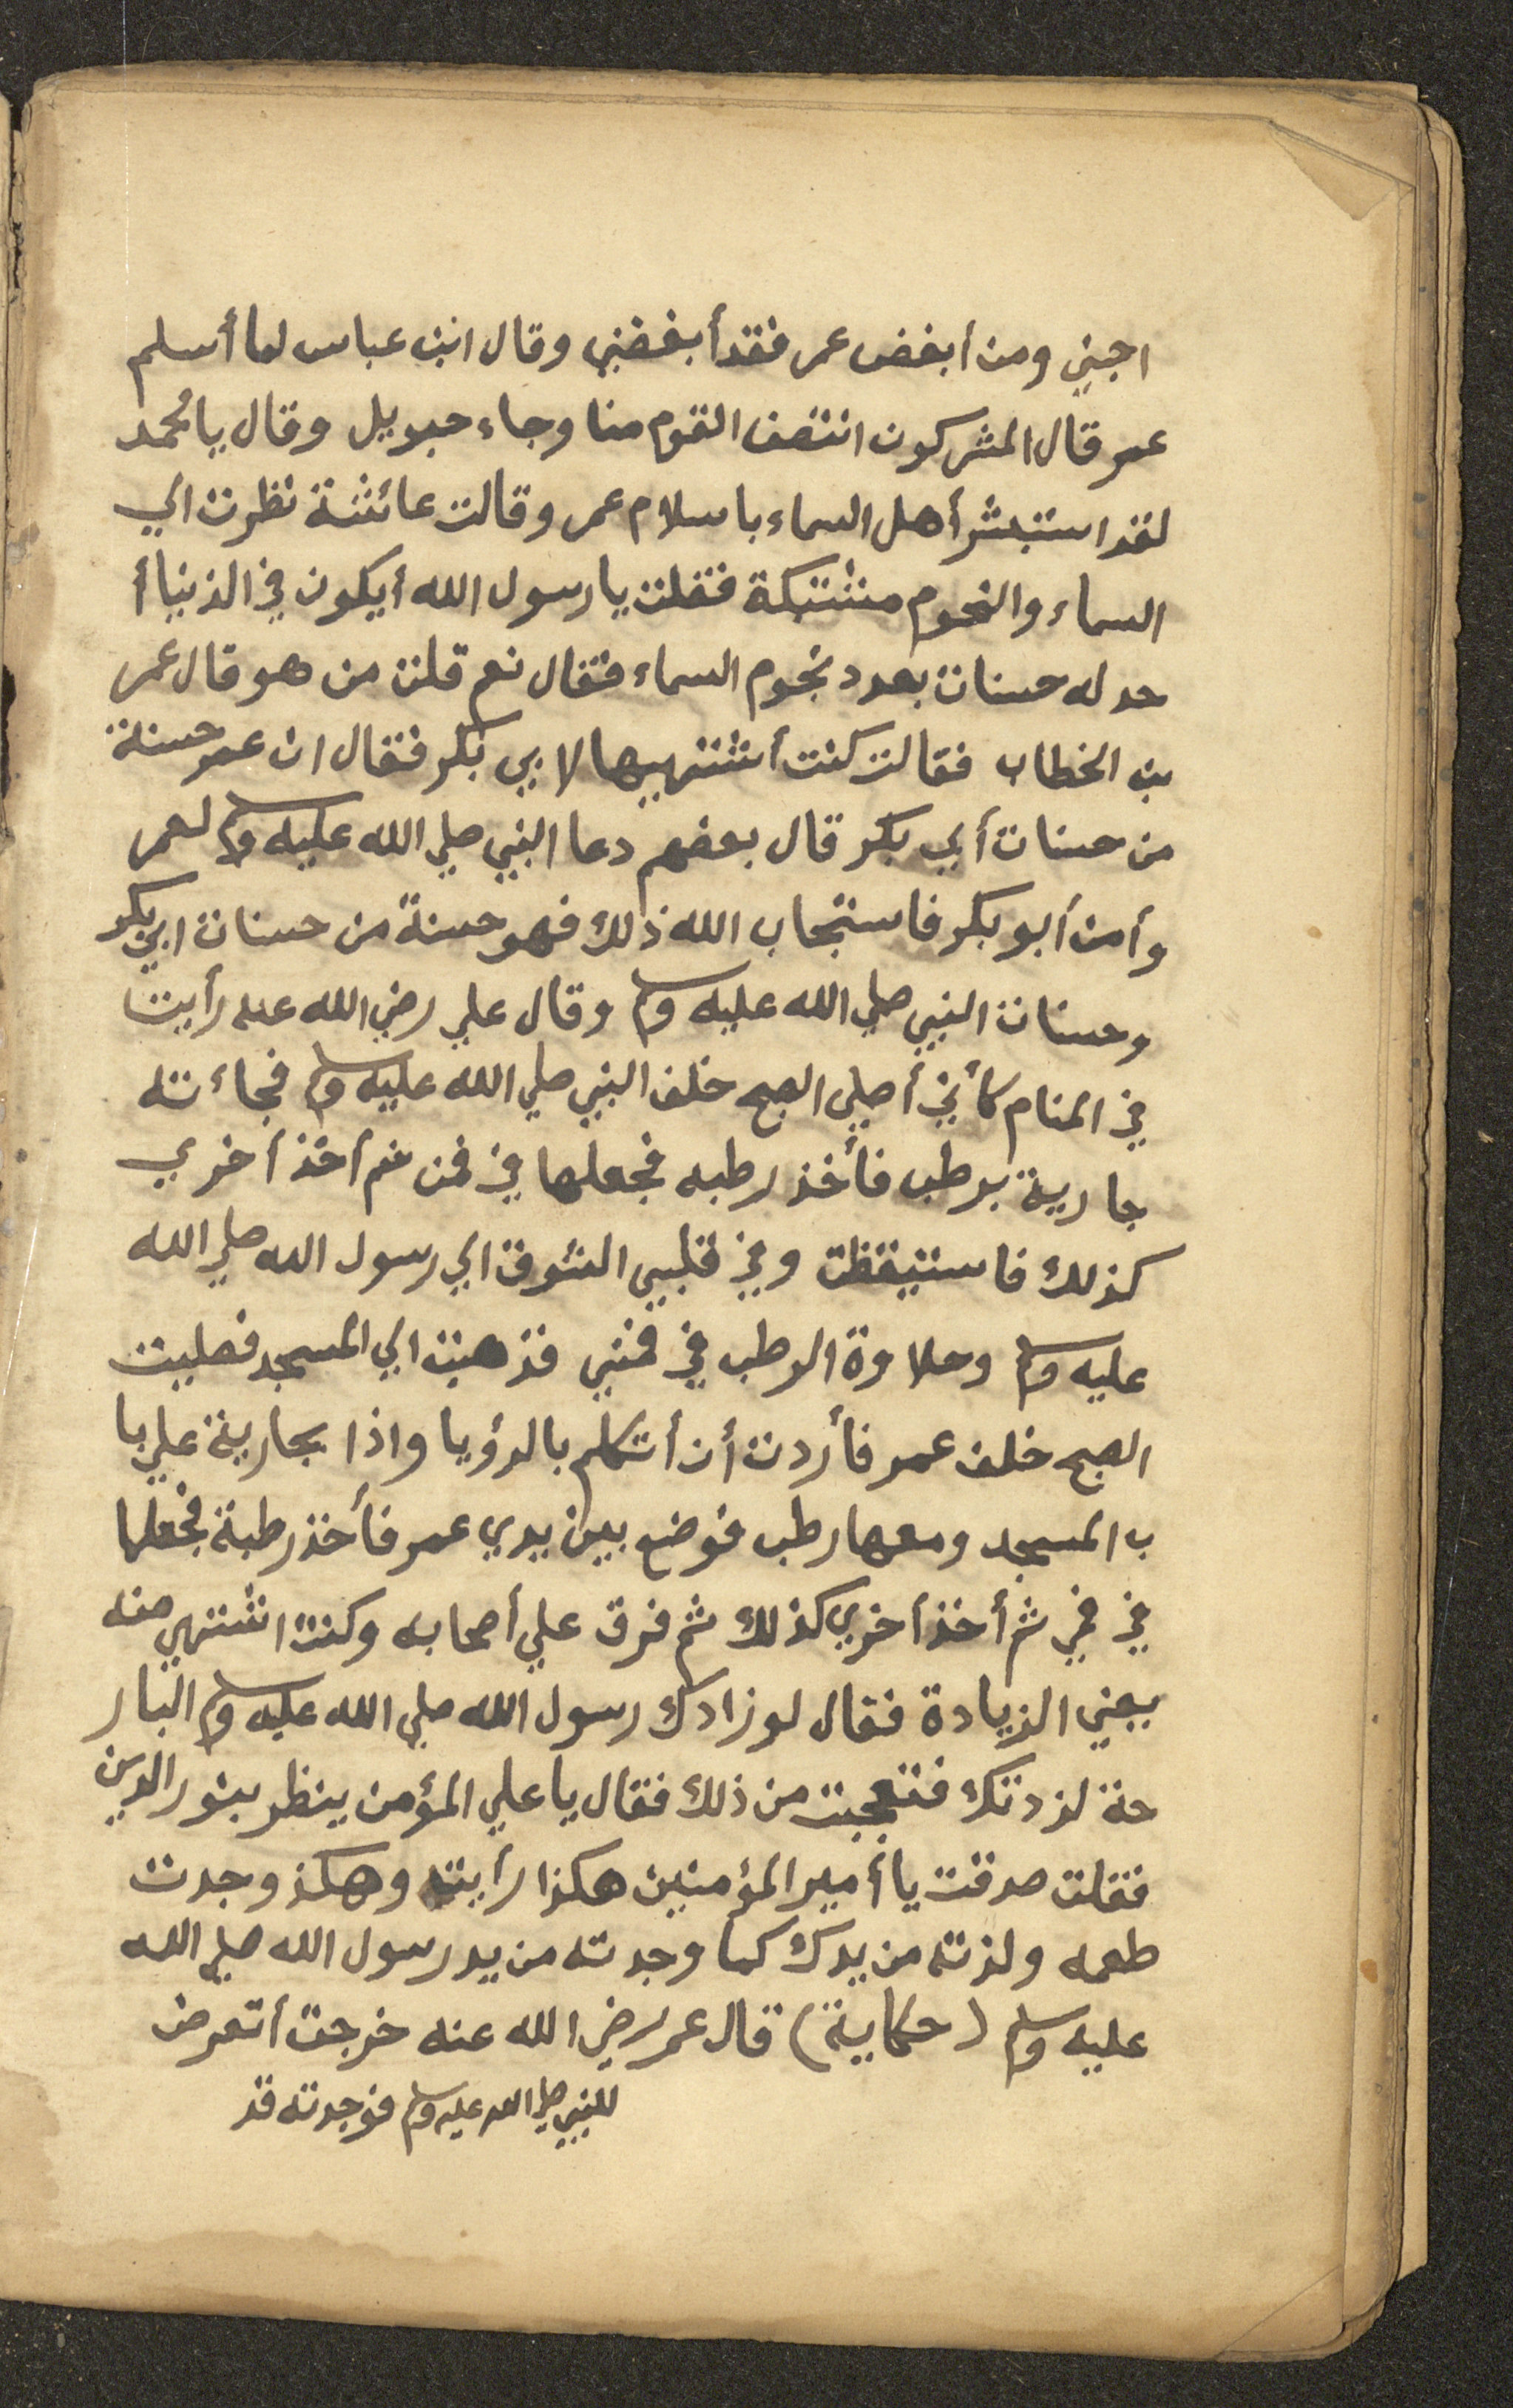 احبني ومن أبغض عمر فقد أبغضني وقال ابن عباس لما أسلم
عمر قال المشركون انتصف القوم منا وجاء جبريل وقال يا محمد
لقد استبشر أهل السماء باسلام عمر وقالت عائشة نظرت الي
السماء والنجوم مشتبكة فقلت يا رسول الله أيكون في الدنيا أ
حد له حسنات بعدد نجوم السماء فقال نعم قلت من هو قال عمر
بن الخطاب فقالت كنت أشتهيها لابي بكر فقال ان عمر حسنة
من حسنات أبي بكر قال بعضهم دعا النبي صلي الله عليه وسلم لعمر
وأمن أبو بكر فاستجاب الله ذلك فهو حسنة من حسنات ابي بكر
وحسنات النبي صلي الله عليه وسلم وقال علي رضي الله عنه رأيت
في المنام كأني أصلي الصبح خلف النبي صلي الله عليه وسلم فجائته
جارية برطب فأخذ رطبه فجعلها في فمي ثم أخذ أخري
كذلك فاستيقظت وفي قلبي الشوق الي رسول الله صلي الله
عليه وسلم وحلاوة الرطب في فمي فذهبت الي المسجد فصليت
الصبح خلف عمر فأردت أن أتكلم بالرؤيا واذا بجارية علي با
ب المسجد ومعها رطب فوضع بين يدي عمر فأخذ رطبة فجعلها
في فمي ثم أخذ أخري كذلك ثم فرق علي أصحابه وكنت اشتهي منه
يعني الزيادة فقال لو زادك رسول الله صلي الله عليه وسلم البار
حة لزدتك فتعجبت من ذلك فقال يا علي المؤمن ينظر بنور الدين
فقلت صدقت يا أمير المؤمنين هكذا رأيت وهكذ وجدت
طعمه ولذته من يدك كما وجدته من يد رسول الله صلي الله
عليه وسلم (حكاية) قال عمر رضي الله عنه خرجت أتعرض
للنبي صلي الله عليه وسلم فوجدته قد